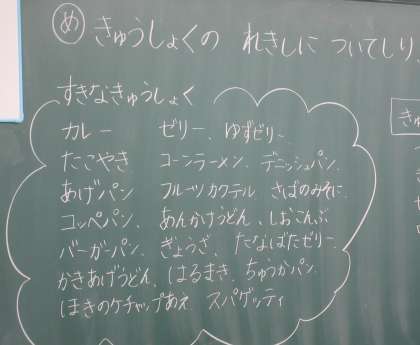 め きゅうしょくの れきしに ついてしり、
すきなきゅうしょく
カレー ゼリー、ゆずゼリー
たこやき コーンラーメン、デニッシュパン、
あげパン フルーツカクテル さばのみそに
コッペパン、あんかけうどん、しおこんぶ
バーガーパン、ぎょうざ、たなばたゼリー、
かきあげうどん、はるまき、ちゅうかパン
ほきのケチャップあえ、スパゲッティ
きゅ